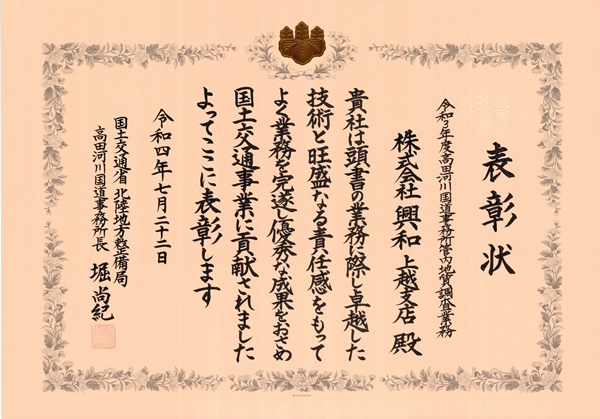 表彰状
令和3年度高田河川国道事務所管内地質調査業務
株式会社 興和 上越支店 殿
貴社は頭書の業務に際し卓越した
技術と旺盛なる責任感をもって
よく業務を完遂し優秀な成果をおさめ
国土交通事業に貢献されました
よってここに表彰します
令和四年七月二十二日
国土交通省 北陸地方整備局
高田河川国道事務所長 堀 尚紀